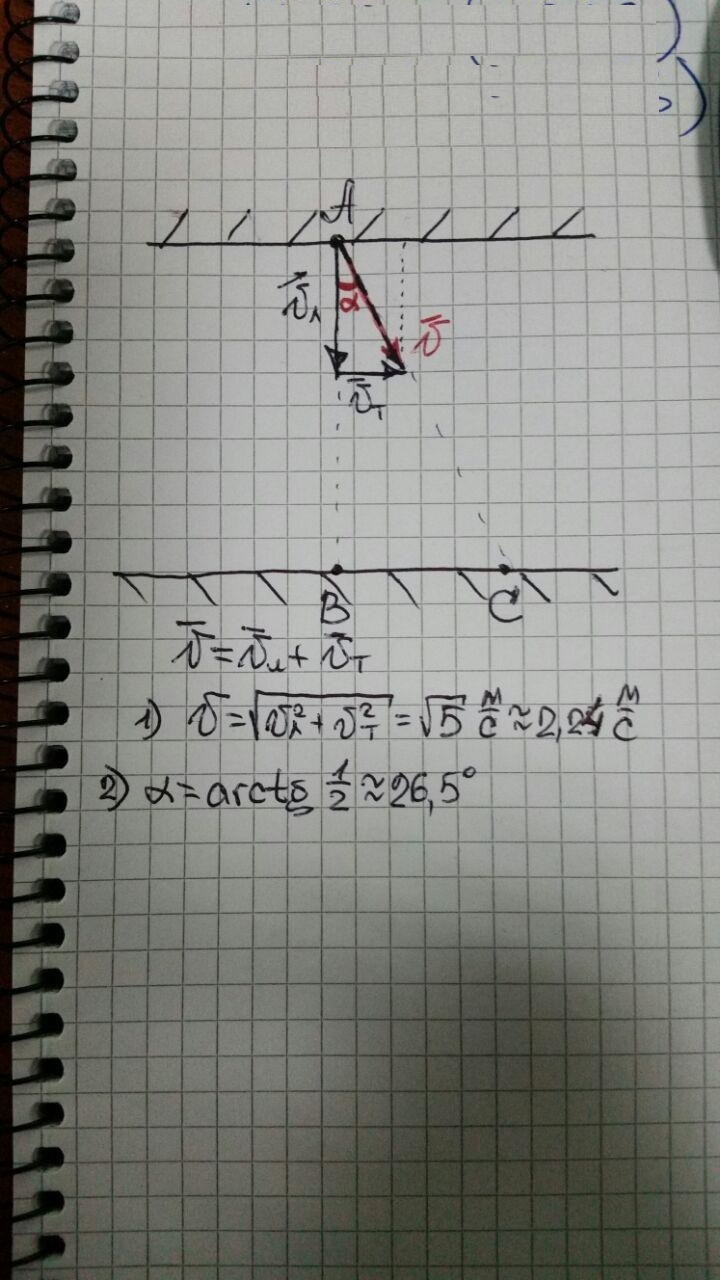 A
v⃗л
α
v⃗
v⃗т
B
C
v⃗ = v⃗л + v⃗т
1) v = √(vл² + vт²) = √5 м/с ≈ 2,24 м/с
2) α = arctg 1/2 ≈ 26,5°